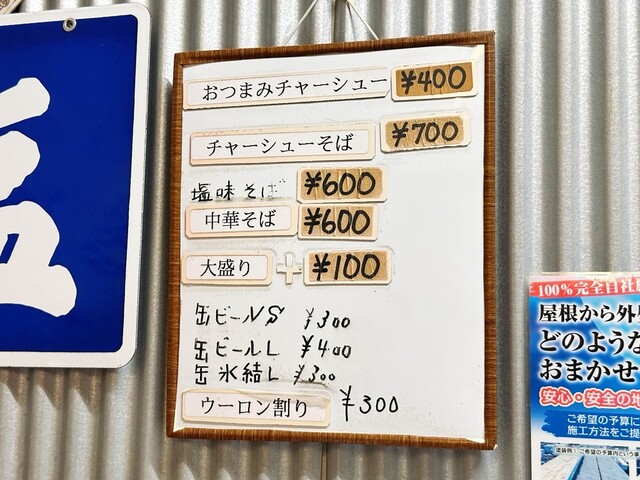 塩
おつまみチャーシュー ¥400
チャーシューそば ¥700
塩味そば ¥600
中華そば ¥600
大盛り + ¥100
缶ビールS ¥300
缶ビールL ¥400
缶氷結L ¥300
ウーロン割り ¥300
100%完全自社
屋根から外
どのような
おまかせ
安心・安全の地
ご希望の予算に
施工方法をご提